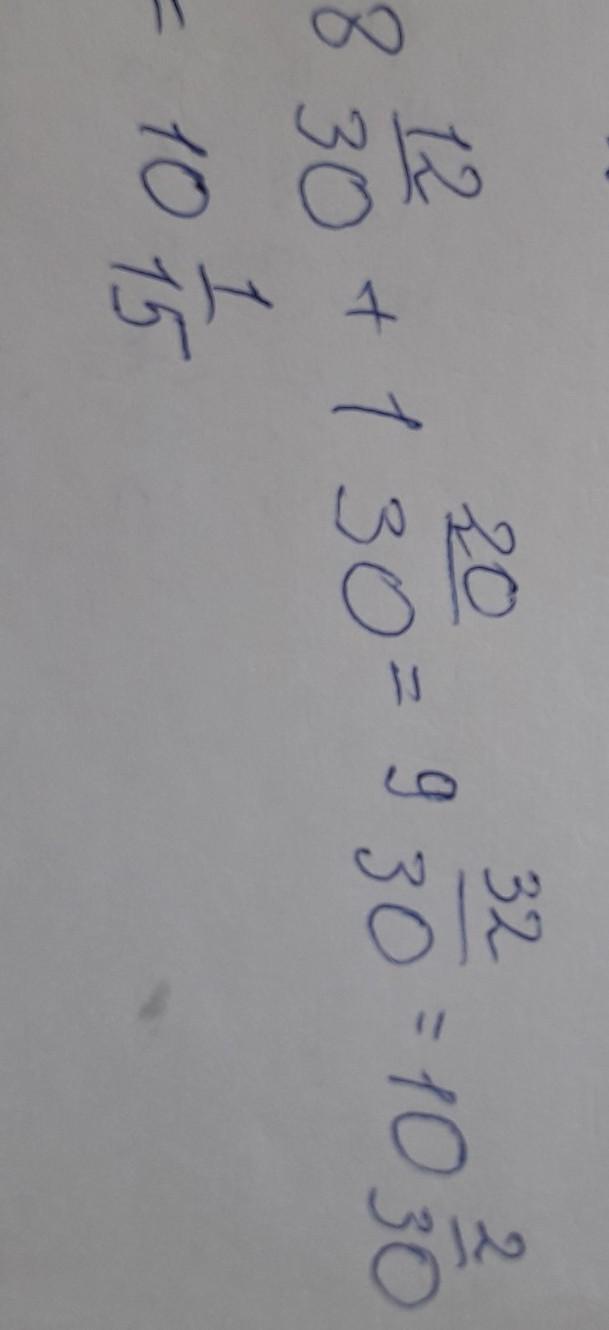 8 12/30 + 1 20/30 = 9 32/30 = 10 2/30
= 10 1/15